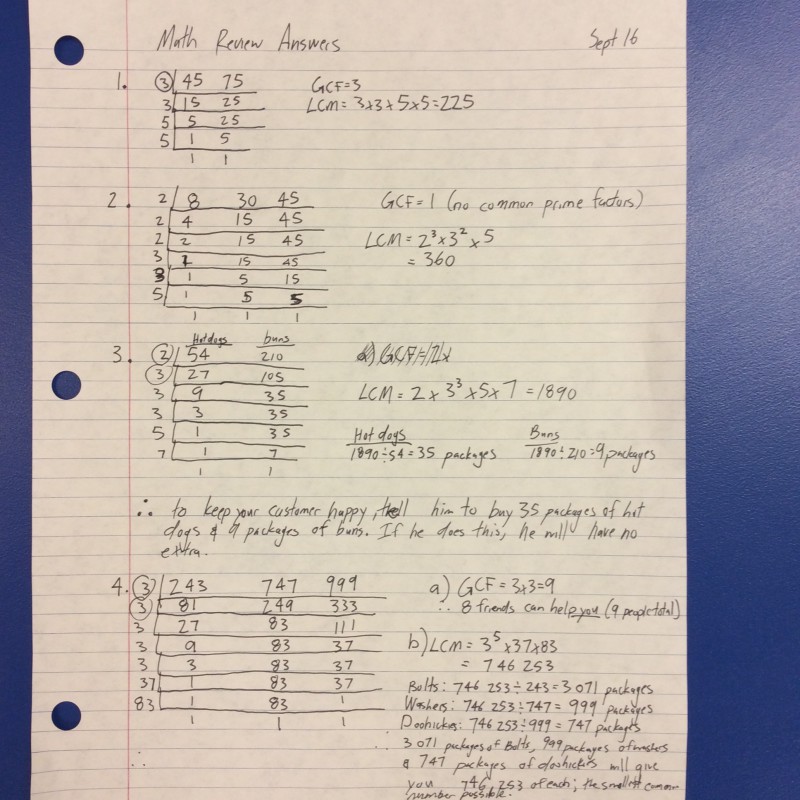 Math Review Answers Sept 16
1. 3 45 75 GCF=3
3 15 25 LCM= 3x3x5x5=225
5 5 25
5 1 5
1 1
2. 2 8 30 45 GCF= 1 (no common prime factors)
2 4 15 45
2 2 15 45 LCM= 2³x3²x5
3 1 15 45 = 360
3 1 5 15
5 1 5 5
1 1 1
Hotdogs buns
3. 2 54 210
3 27 105
3 9 35 LCM= 2x3³x5x7=1890
3 3 35
5 1 35 Hot dogs Buns
7 1 7 1890÷54=35 packages 1890÷210=9packages
1 1
∴ to keep your customer happy, tell him to buy 35 packages of hot
dogs & 9 packages of buns. If he does this, he will have no
extra.
4. 3 243 747 999 a) GCF= 3x3=9
3 81 249 333 ∴ 8 friends can help you (9 people total)
3 27 83 111
3 9 83 37 b) LCM= 3⁵x37x83
3 3 83 37 = 746 253
37 1 83 37 Bolts: 746 253÷243=3 071 packages
83 1 83 1 Washers: 746 253÷747= 999 packages
1 1 1 Doohickies: 746 253÷999= 747 packages
∴ 3 071 packages of Bolts, 999 packages of washers
& 747 packages of doohickies will give
you 746 253 of each; the smallest common
number possible.